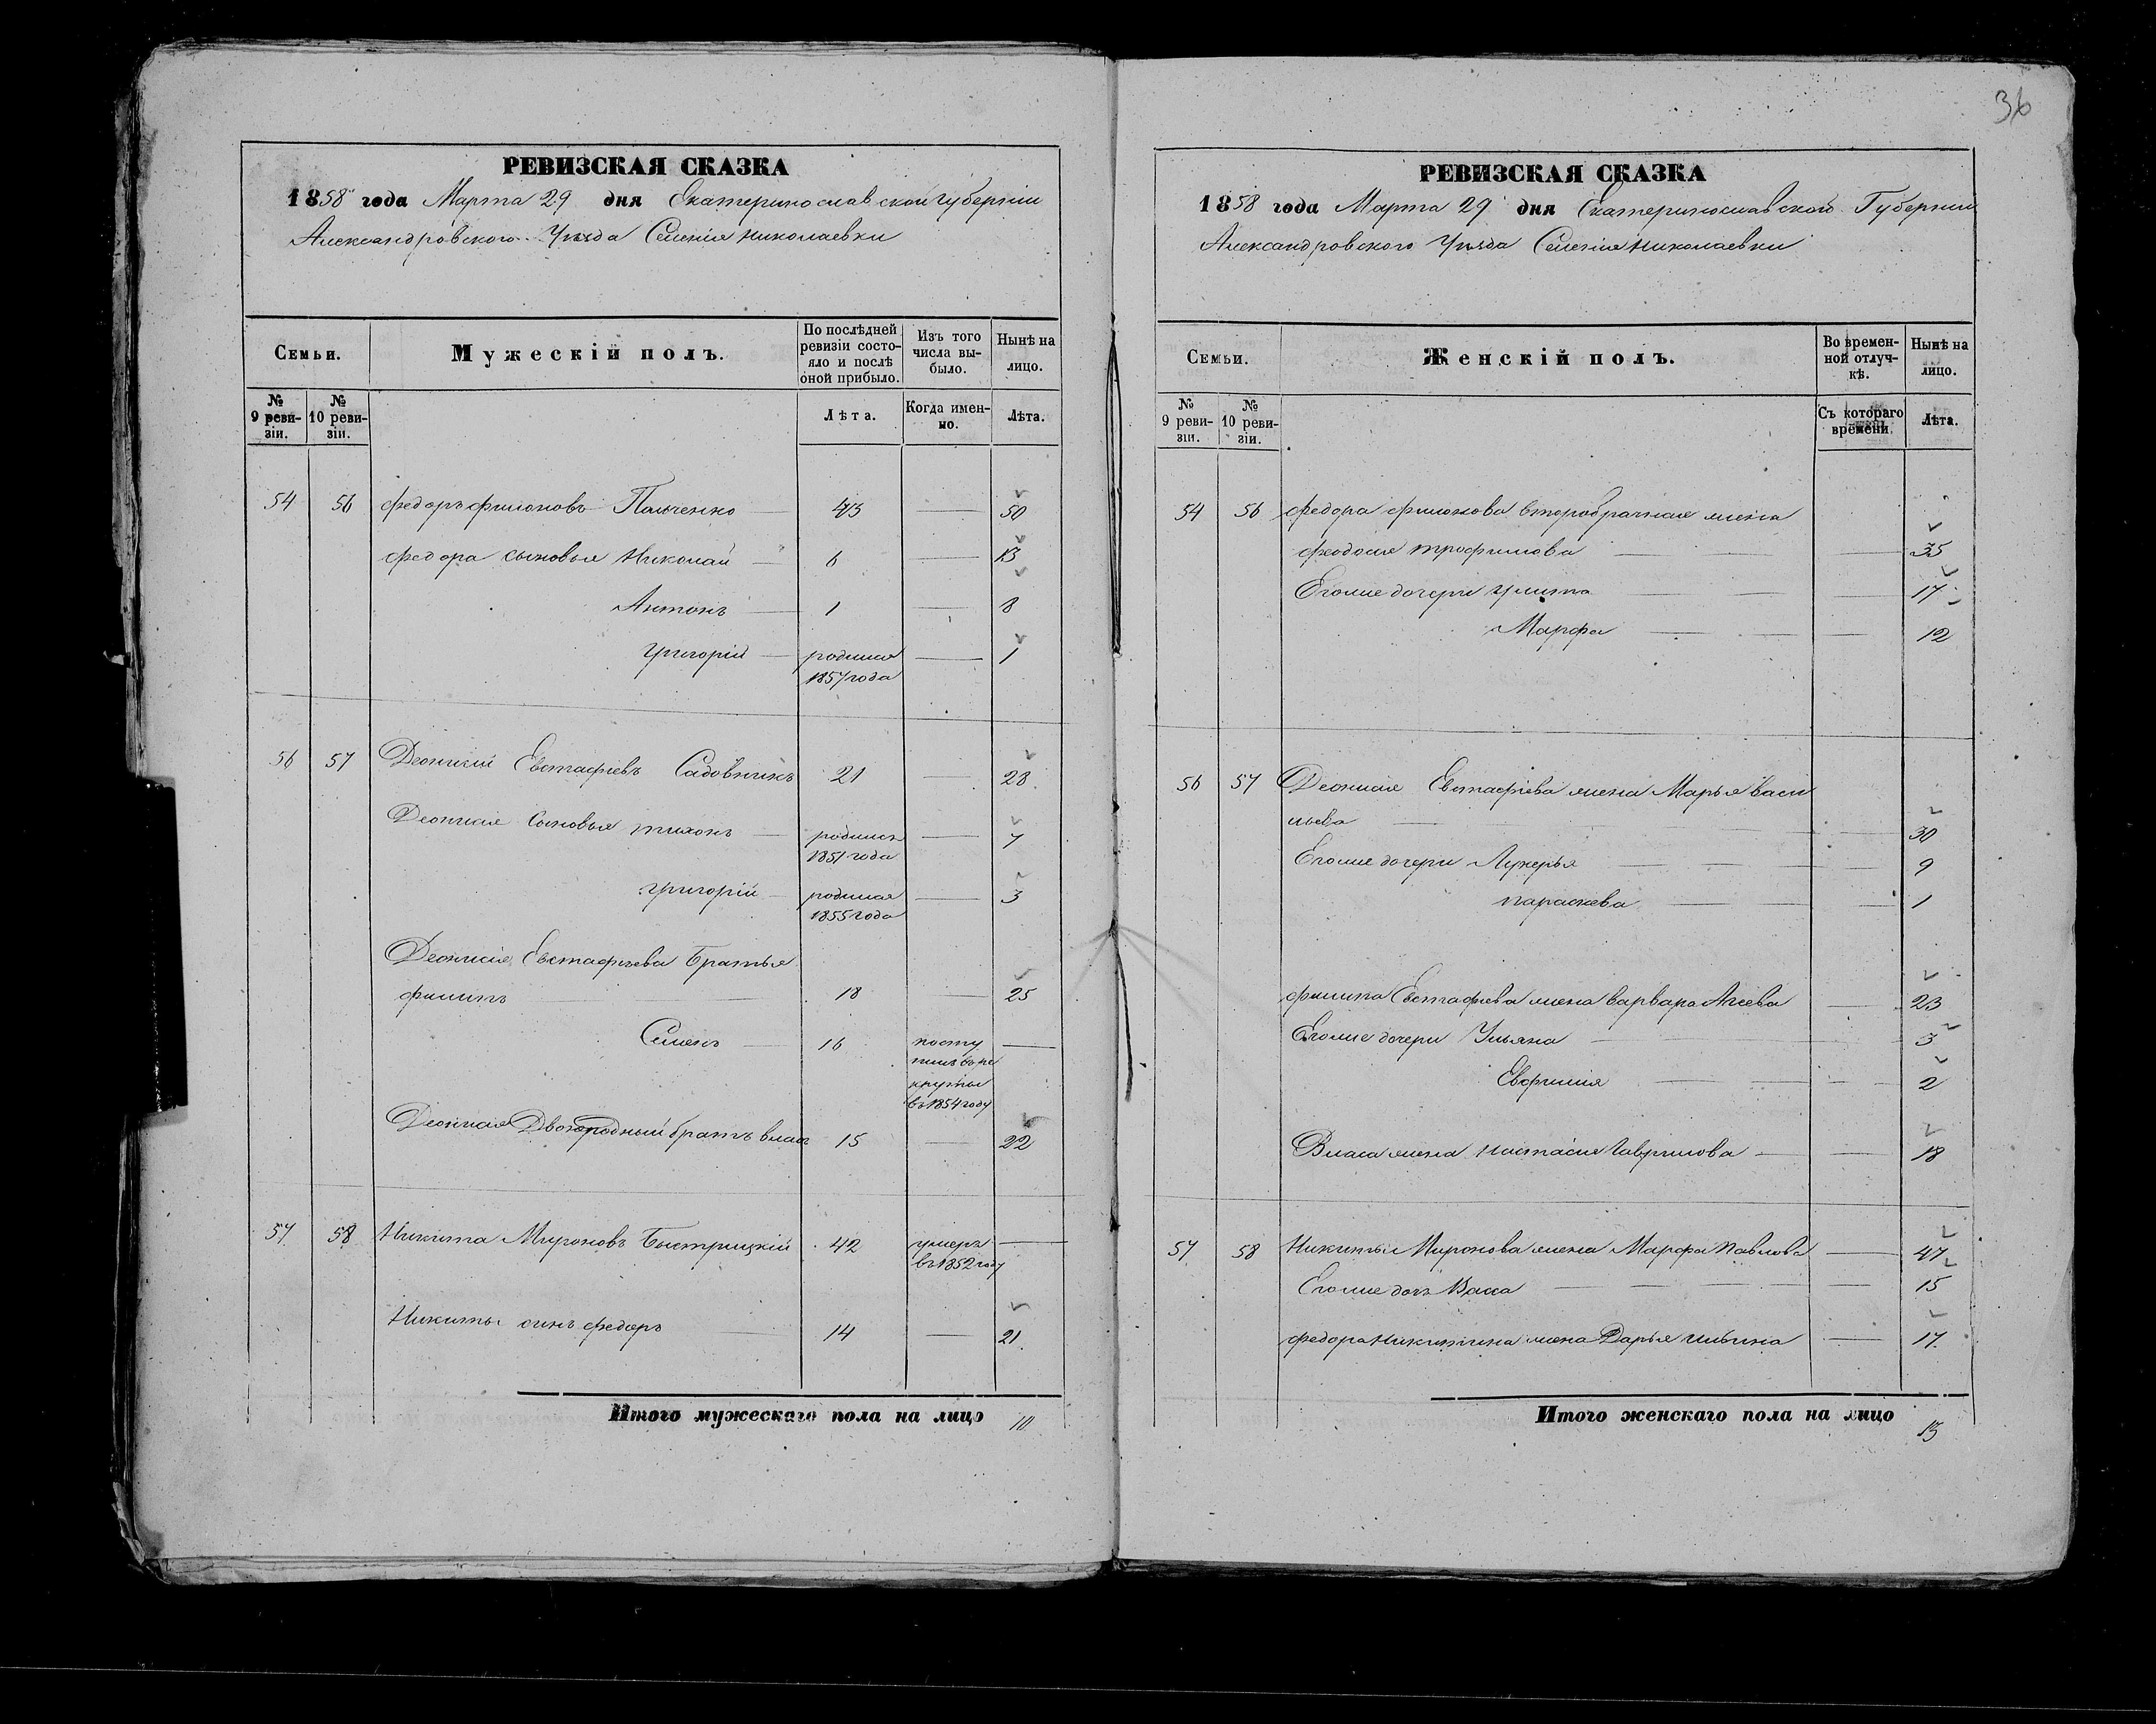 36
РЕВИЗСКАЯ СКАЗКА
1858 года Марта 29 дня Екатеринославской губерніи
Александровского Уѣзда Селенія Николаевки
Семьи.
Мужескій полъ.
По послѣдней ревизіи состояло и послѣ оной прибыло.
Изъ того числа выбыло.
Нынѣ на лицо.
№ 9 ревизіи.
№ 10 ревизіи.
Лѣта.
Когда именно.
Лѣта.
54 56 Федоръ Филоновъ Польченко 43 50
Федора сыновья Николай 6 13
Антонъ 1 8
Григорій родился 1
1857 года
56 57 Деонисій Евстафіевъ Садовникъ 21 28
Деонисія Сыновья Тихонъ родился 7
1851 года
Григорій родился 3
1855 года
Деонисія Евстафьева Братья
Филипъ 18 25
Семенъ 16 посту
пилъ въ ре
круты
въ 1854 году
Деонисія Двоюродный братъ Власъ 15 22
57 58 Никита Мироновъ Быстрицкій 42 умеръ
въ 1852 году
Никиты сынъ Федоръ 14 21
Итого мужескаго пола на лицо 10
РЕВИЗСКАЯ СКАЗКА
1858 года Марта 29 дня Екатеринославской Губерніи
Александровского Уѣзда Селенія Николаевки
Семьи.
Женскій полъ.
Во временной отлучкѣ.
Нынѣ на лицо.
№ 9 ревизіи.
№ 10 ревизіи.
Съ котораго времени.
Лѣта.
54 56 Федора Филонова второбрачная жена
Феодосия Трофимова 35
Его же дочери Улита 17
Марфа 12
56 57 Деонисия Евстафіева жена Марья Васи
льева 30
Его же дочери Лукерья 9
Параскева 1
Филипа Евстафіева жена Варвара Агеева 23
Его же дочери Ульяна 3
Евфимия 2
Власа жена Настасія Гаврилова 18
57 58 Никиты Миронова жена Марфа Павлова 47
Его же дочь Васса 15
Федора Никитина жена Дарья Ильина 17
Итого женскаго пола на лицо
13